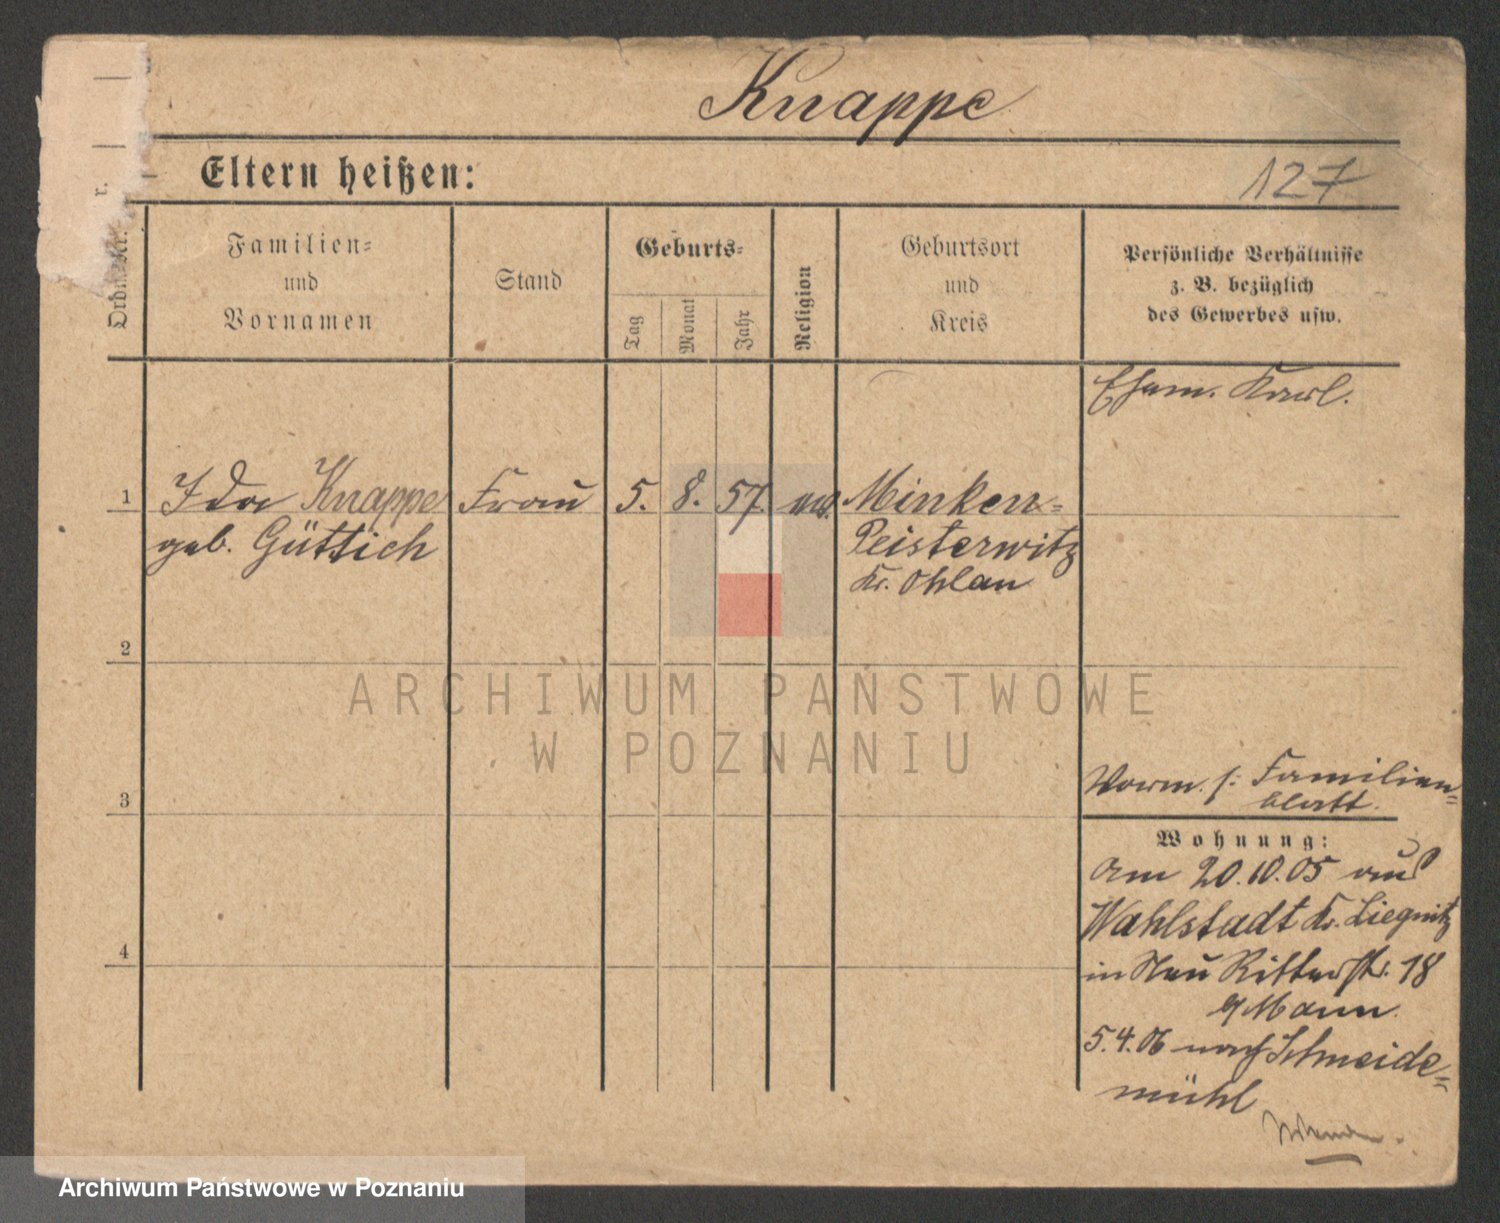 Knappe
Eltern heißen:
127
Ordn. Nr.
Familien-
und
Vornamen
Stand
Geburts-
Tag
Monat
Jahr
Religion
Geburtsort
und
Kreis
Persönliche Verhältnisse
z. B. bezüglich
des Gewerbes usw.
Ehem. Karl.
1 Ida Knappe Frau 5. 8. 57. Minken-
geb. Güttich Peisterwitz
Kr. Ohlan
2
ARCHIWUM PAŃSTWOWE
W POZNANIU
Vorm. s: Familien-
blatt.
3
Wohnung:
Am 20.10.05 aus
Wahlstadt Kr. Liegnitz
4
in Neu Ritterstr. 18
Mann.
5.4.06 nach Schneide-
mühl
Archiwum Państwowe w Poznaniu